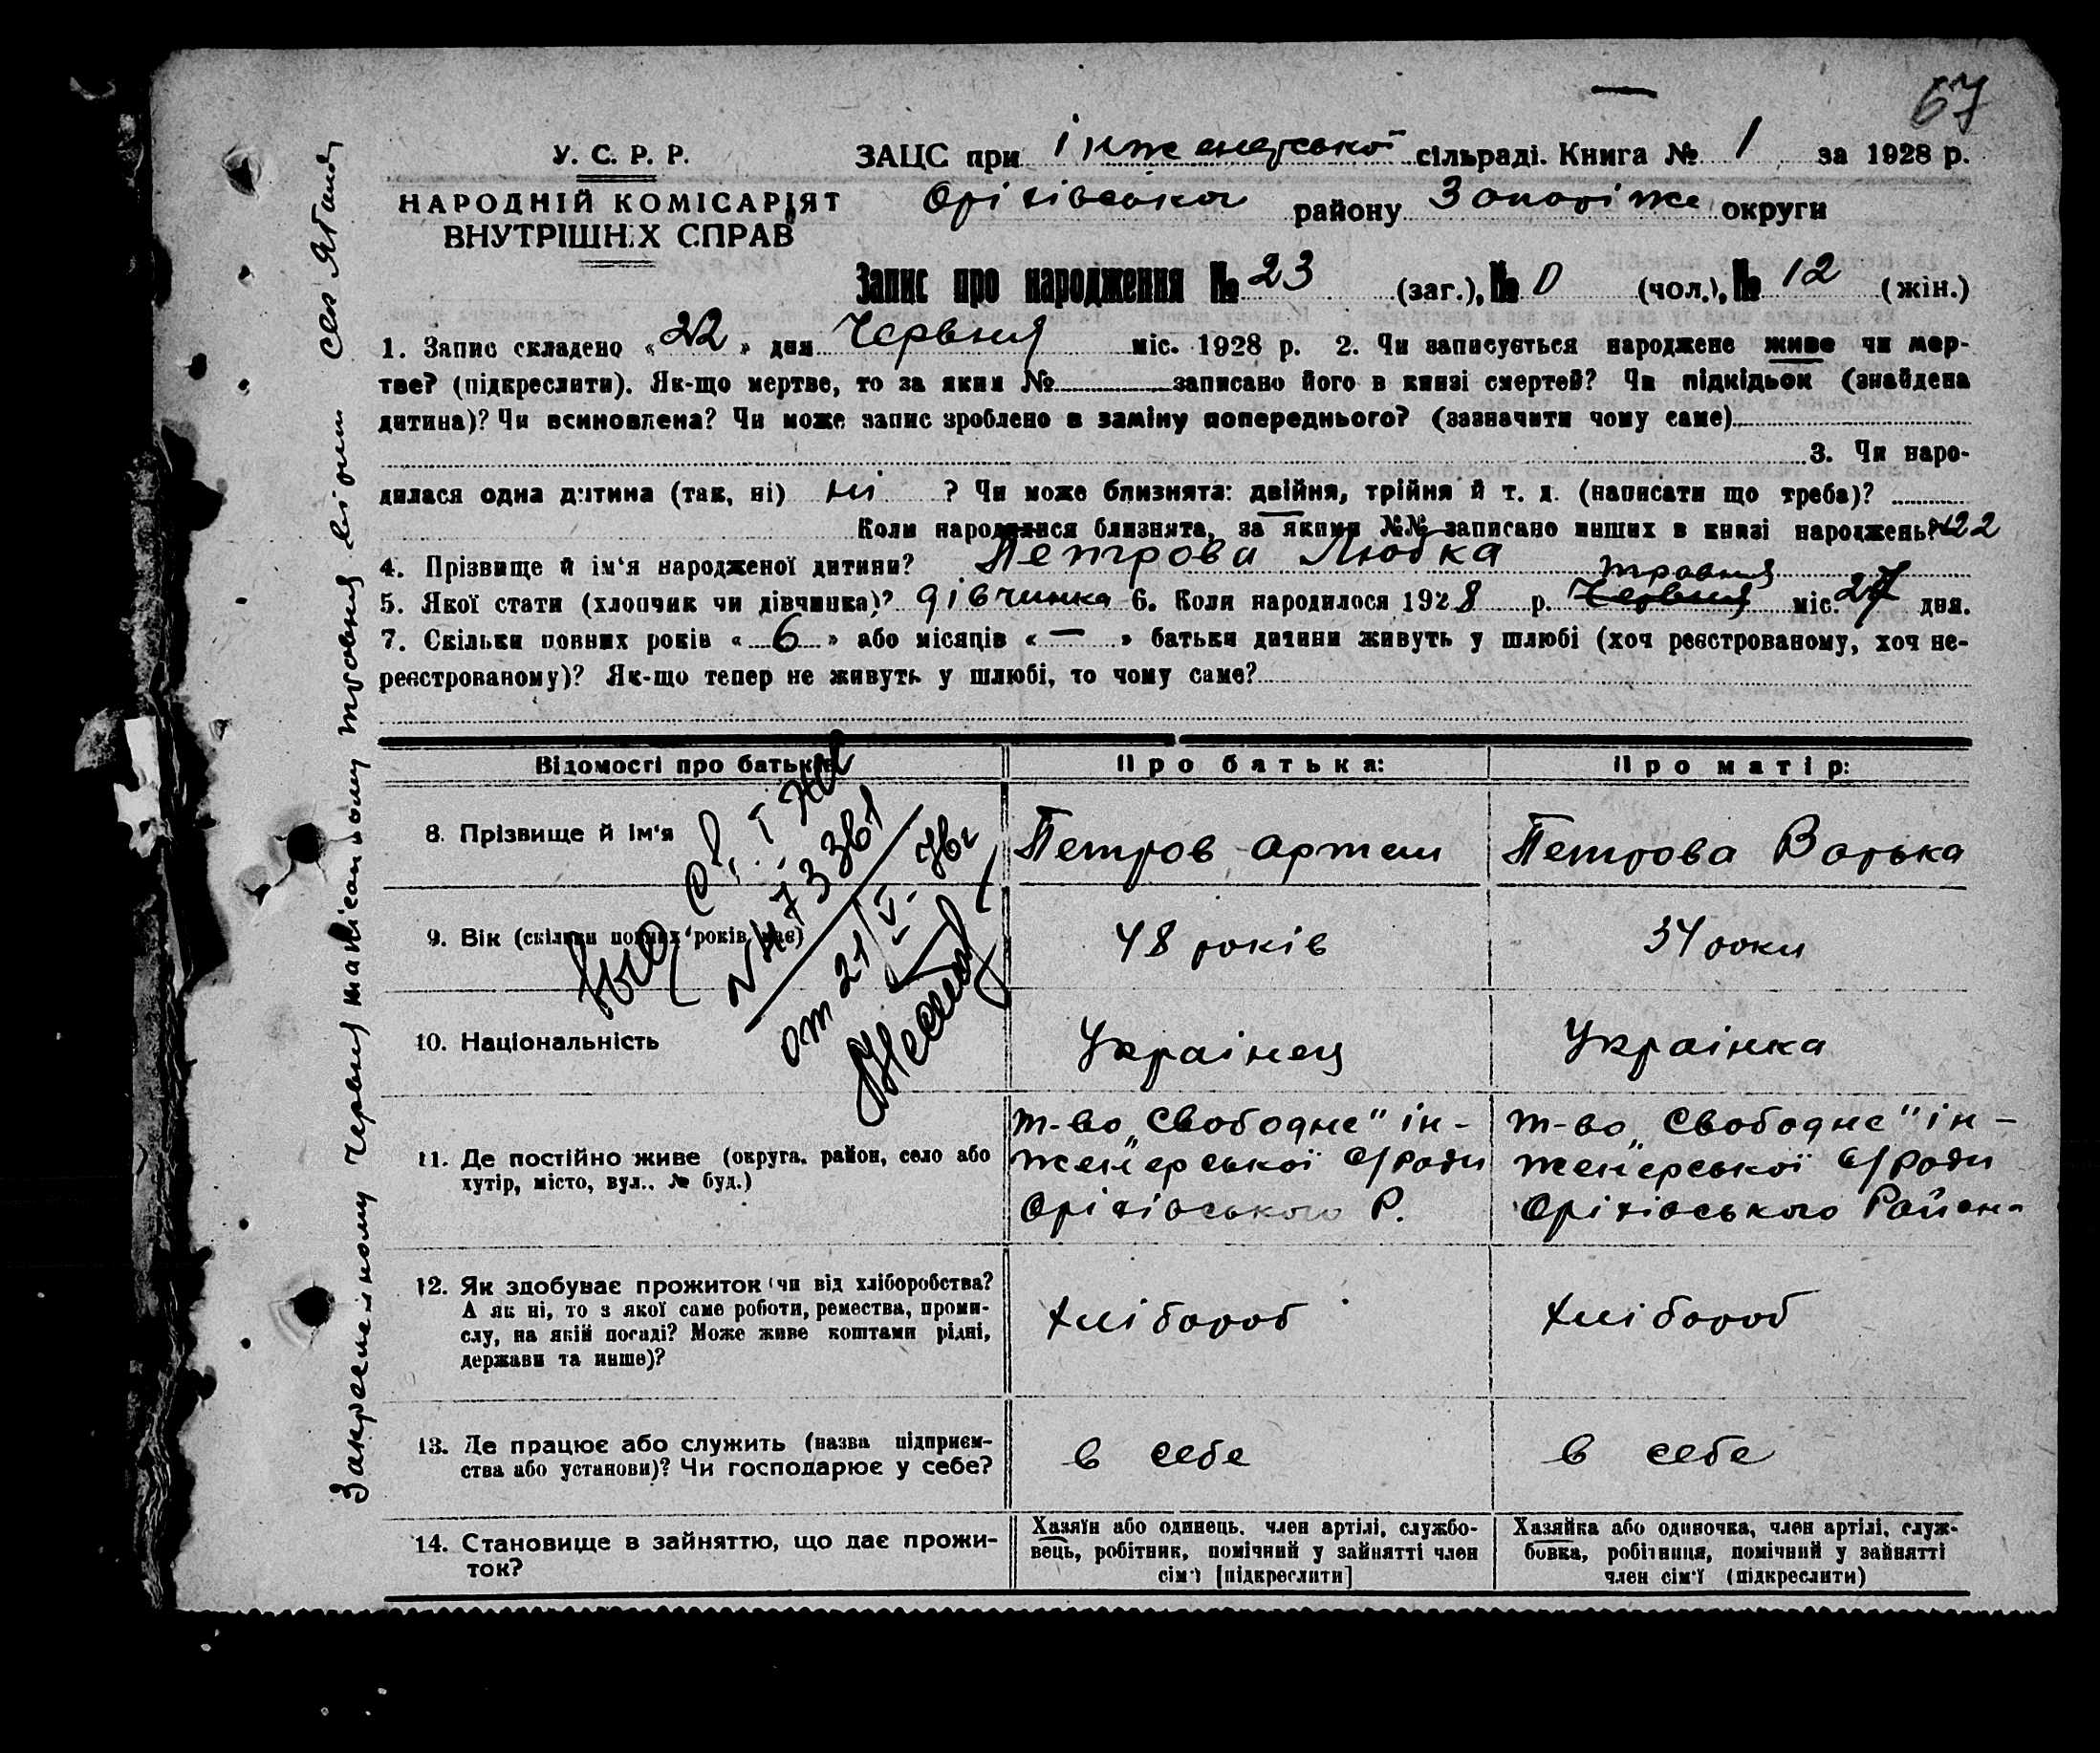 67
У. С. Р. Р.
НАРОДНІЙ КОМІСАРІЯТ
ВНУТРІШНІХ СПРАВ
ЗАЦС при Інженерської сільраді. Книга № 1 за 1928 р.
Оріхівська району Запоріже округи
Запис про народження № 23 (заг.), № 0 (чол.), № 12 (жін.)
1. Запис складено « 22 » дня Червня міс. 1928 р. 2. Чи записується народжене живе чи мер-
тве? (підкреслити). Як-що мертве, то за яким № записано його в книзі смертей? Чи підкідьок (знайдена
дитина)? Чи всиновлена? Чи може запис зроблено в заміну попереднього? (зазначити чому саме)
3. Чи наро-
дилася одна дитина (так, ні) ні ? Чи може близнята: двійня, трійня й т. д. (написати що треба)?
Коли народилися близнята, за якими №№ записано инших в книзі народжень? №22
4. Прізвище й ім'я народженої дитини? Петрова Любка
5. Якої стати (хлопчик чи дівчинка)? дівчинка 6. Коли народилося 1928 р. Червня травня міс. 27 дня.
7. Скільки повних років « 6 » або місяців « — » батьки дитини живуть у шлюбі (хоч реєстрованому, хоч не-
реєстрованому)? Як-що тепер не живуть у шлюбі, то чому саме?
Відомості про батьків
Про батька:
Про матір:
8. Прізвище й ім'я
Петров Артем
Петрова Варька
9. Вік (скільки повних років має)
48 років
34 роки
10. Національність
Українец
Українка
11. Де постійно живе (округа, район, село або
хутір, місто, вул., № буд.)
т-во „Свободне" ін-
женерської с/ради
Оріхівського Р.
т-во „Свободне" ін-
женерської с/ради
Оріхівського Району
12. Як здобуває прожиток (чи від хліборобства?
А як ні, то з якої саме роботи, ремества, проми-
слу, на якій посаді? Може живе коштами рідні,
держави та инше)?
хлібороб
хлібороб
13. Де працює або служить (назва підприєм-
ства або установи)? Чи господарює у себе?
в себе
в себе
14. Становище в зайняттю, що дає прожи-
ток?
Хазяїн або одинець, член артілі, службо-
вець, робітник, помічний у зайнятті член
сім'ї [підкреслити]
Хазяйка або одиночка, член артілі, служ-
бовка, робітниця, помічний у зайнятті
член сім'ї (підкреслити)
от 21/V-76г
Закресленому червня написаному травня вірить